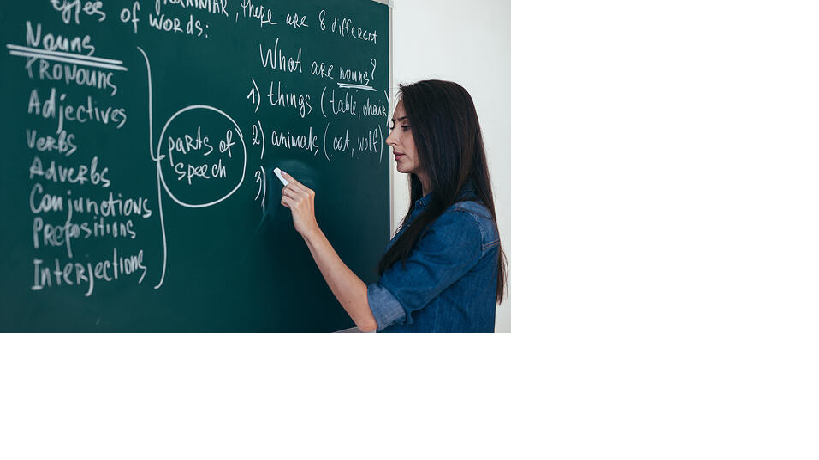 GRAMMAR, there are 8 different
types of words:
Nouns
PRONOUNS
Adjectives
Verbs
Adverbs
Conjunctions
Prepositions
Interjections
parts of
speech
What are nouns?
1) things (table, chair
2) animals (cat, wolf)
3)